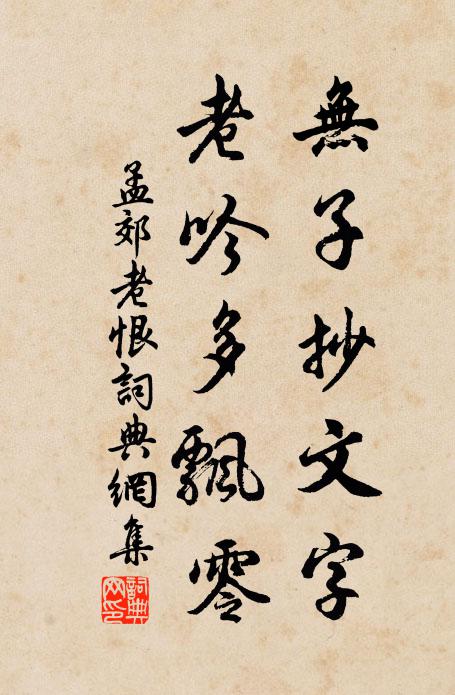 無子抄文字
老吟多飄零
孟郊老恨詞典網集
詞典網印